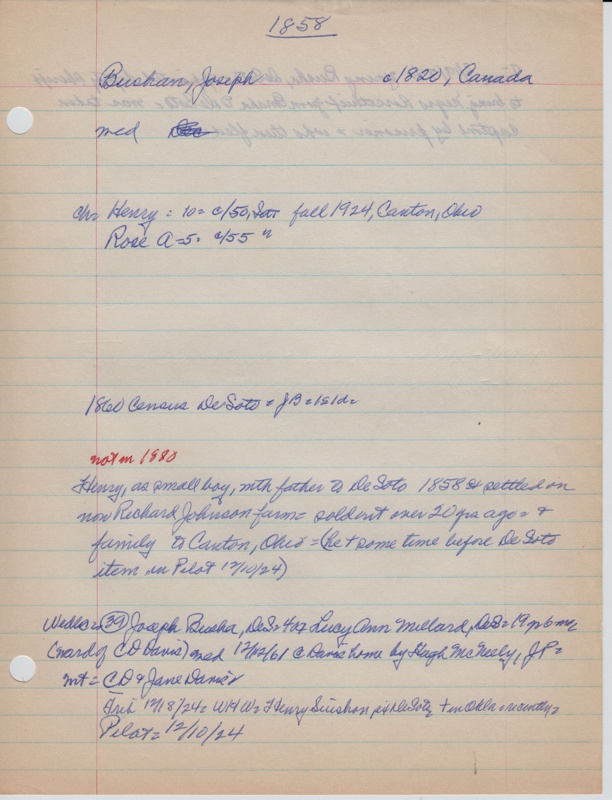 1858
Bushan, Joseph c1820, Canada
med
ch= Henry = 10= c/50, fall 1924, Canton, Ohio
Rose A=5= c/55 "
1860 Census DeSoto = JB=
not in 1880
Henry, as small boy, with father to DeSoto 1858 & settled on
now Richard Johnson farm= sold out over 20 yrs ago= &
family to Canton, Ohio = (he + some time before DeSoto
item in Pilot 12/10/24)
(39) Joseph Busha, DeS= Lucy Ann Millard, DeS= 19
(ward of C D Davis) med 12/12/61 C Davis home by Hugh McNeely, JP=
wt = CD & Jane Davis
12/18/24= WHW= Henry DeSoto, + in recently=
Pilot= 12/10/24